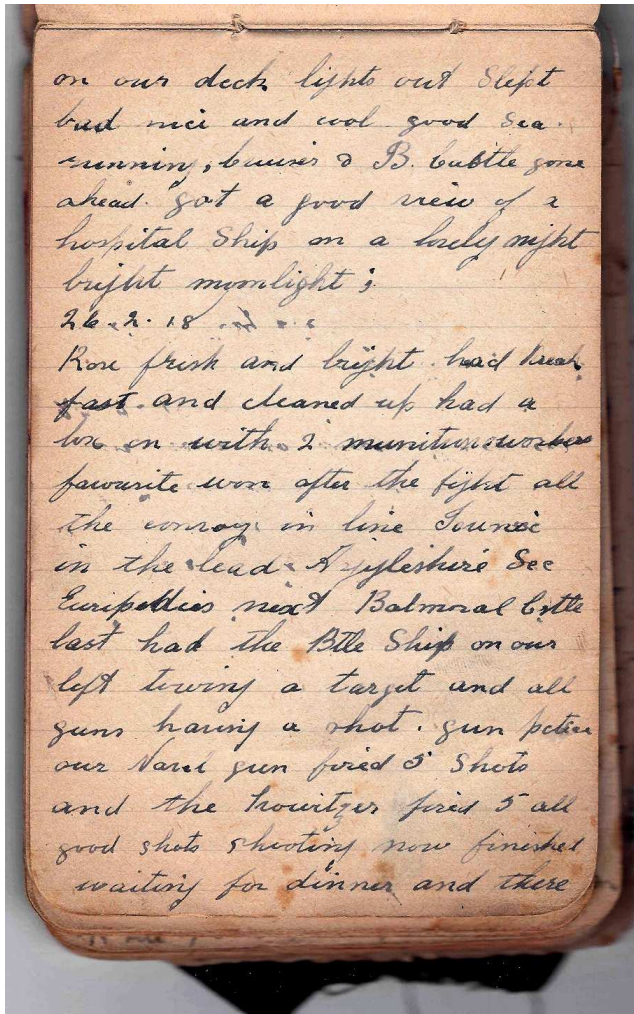 on our deck lights out Slept
bad nice and cool good Sea.
running, & B. Castle gone
ahead. got a good view of a
hospital Ship on a lovely night
bright moonlight;
26.2.18
Rose fresh and bright. had break
fast and cleaned up had a
box on with 2 munition workers
favourite won after the fight all
the convoy in line
in the lead Argyleshire Sec
Euripeddies next Balmoral Cstle
last had the Btle Ship on our
left towing a target and all
guns having a shot. gun
our Naval gun fired 5 Shots
and the howitzer fired 5 all
good shots shooting now finished
waiting for dinner and there